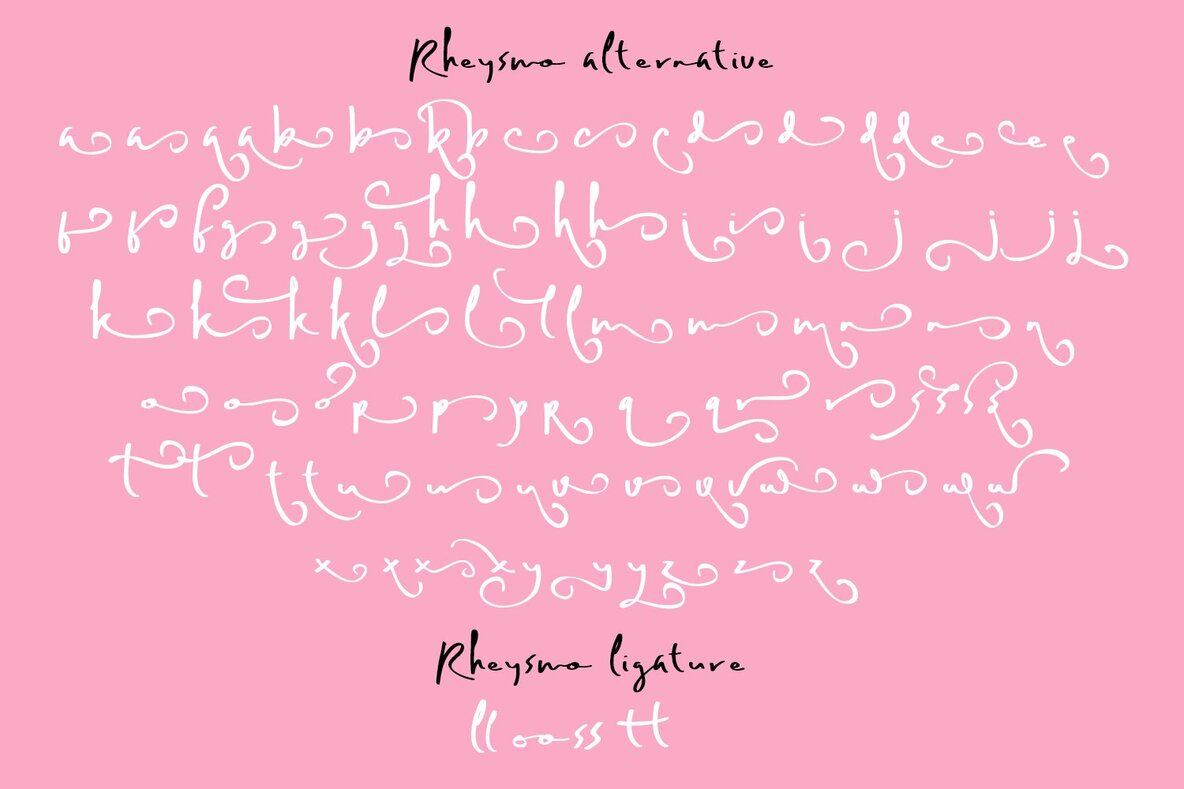 Rheysmo alternative
a a a a b b b b c c c d d d d e e e e
f f f g g g g h h h h i i i j j j j
k k k k l l l l m m m n n n
o o o p p p p q q r r s s s s
t t t t u u u v v v v w w w w
x x x x y y y z z z
Rheysmo ligature
ll oo ss tt